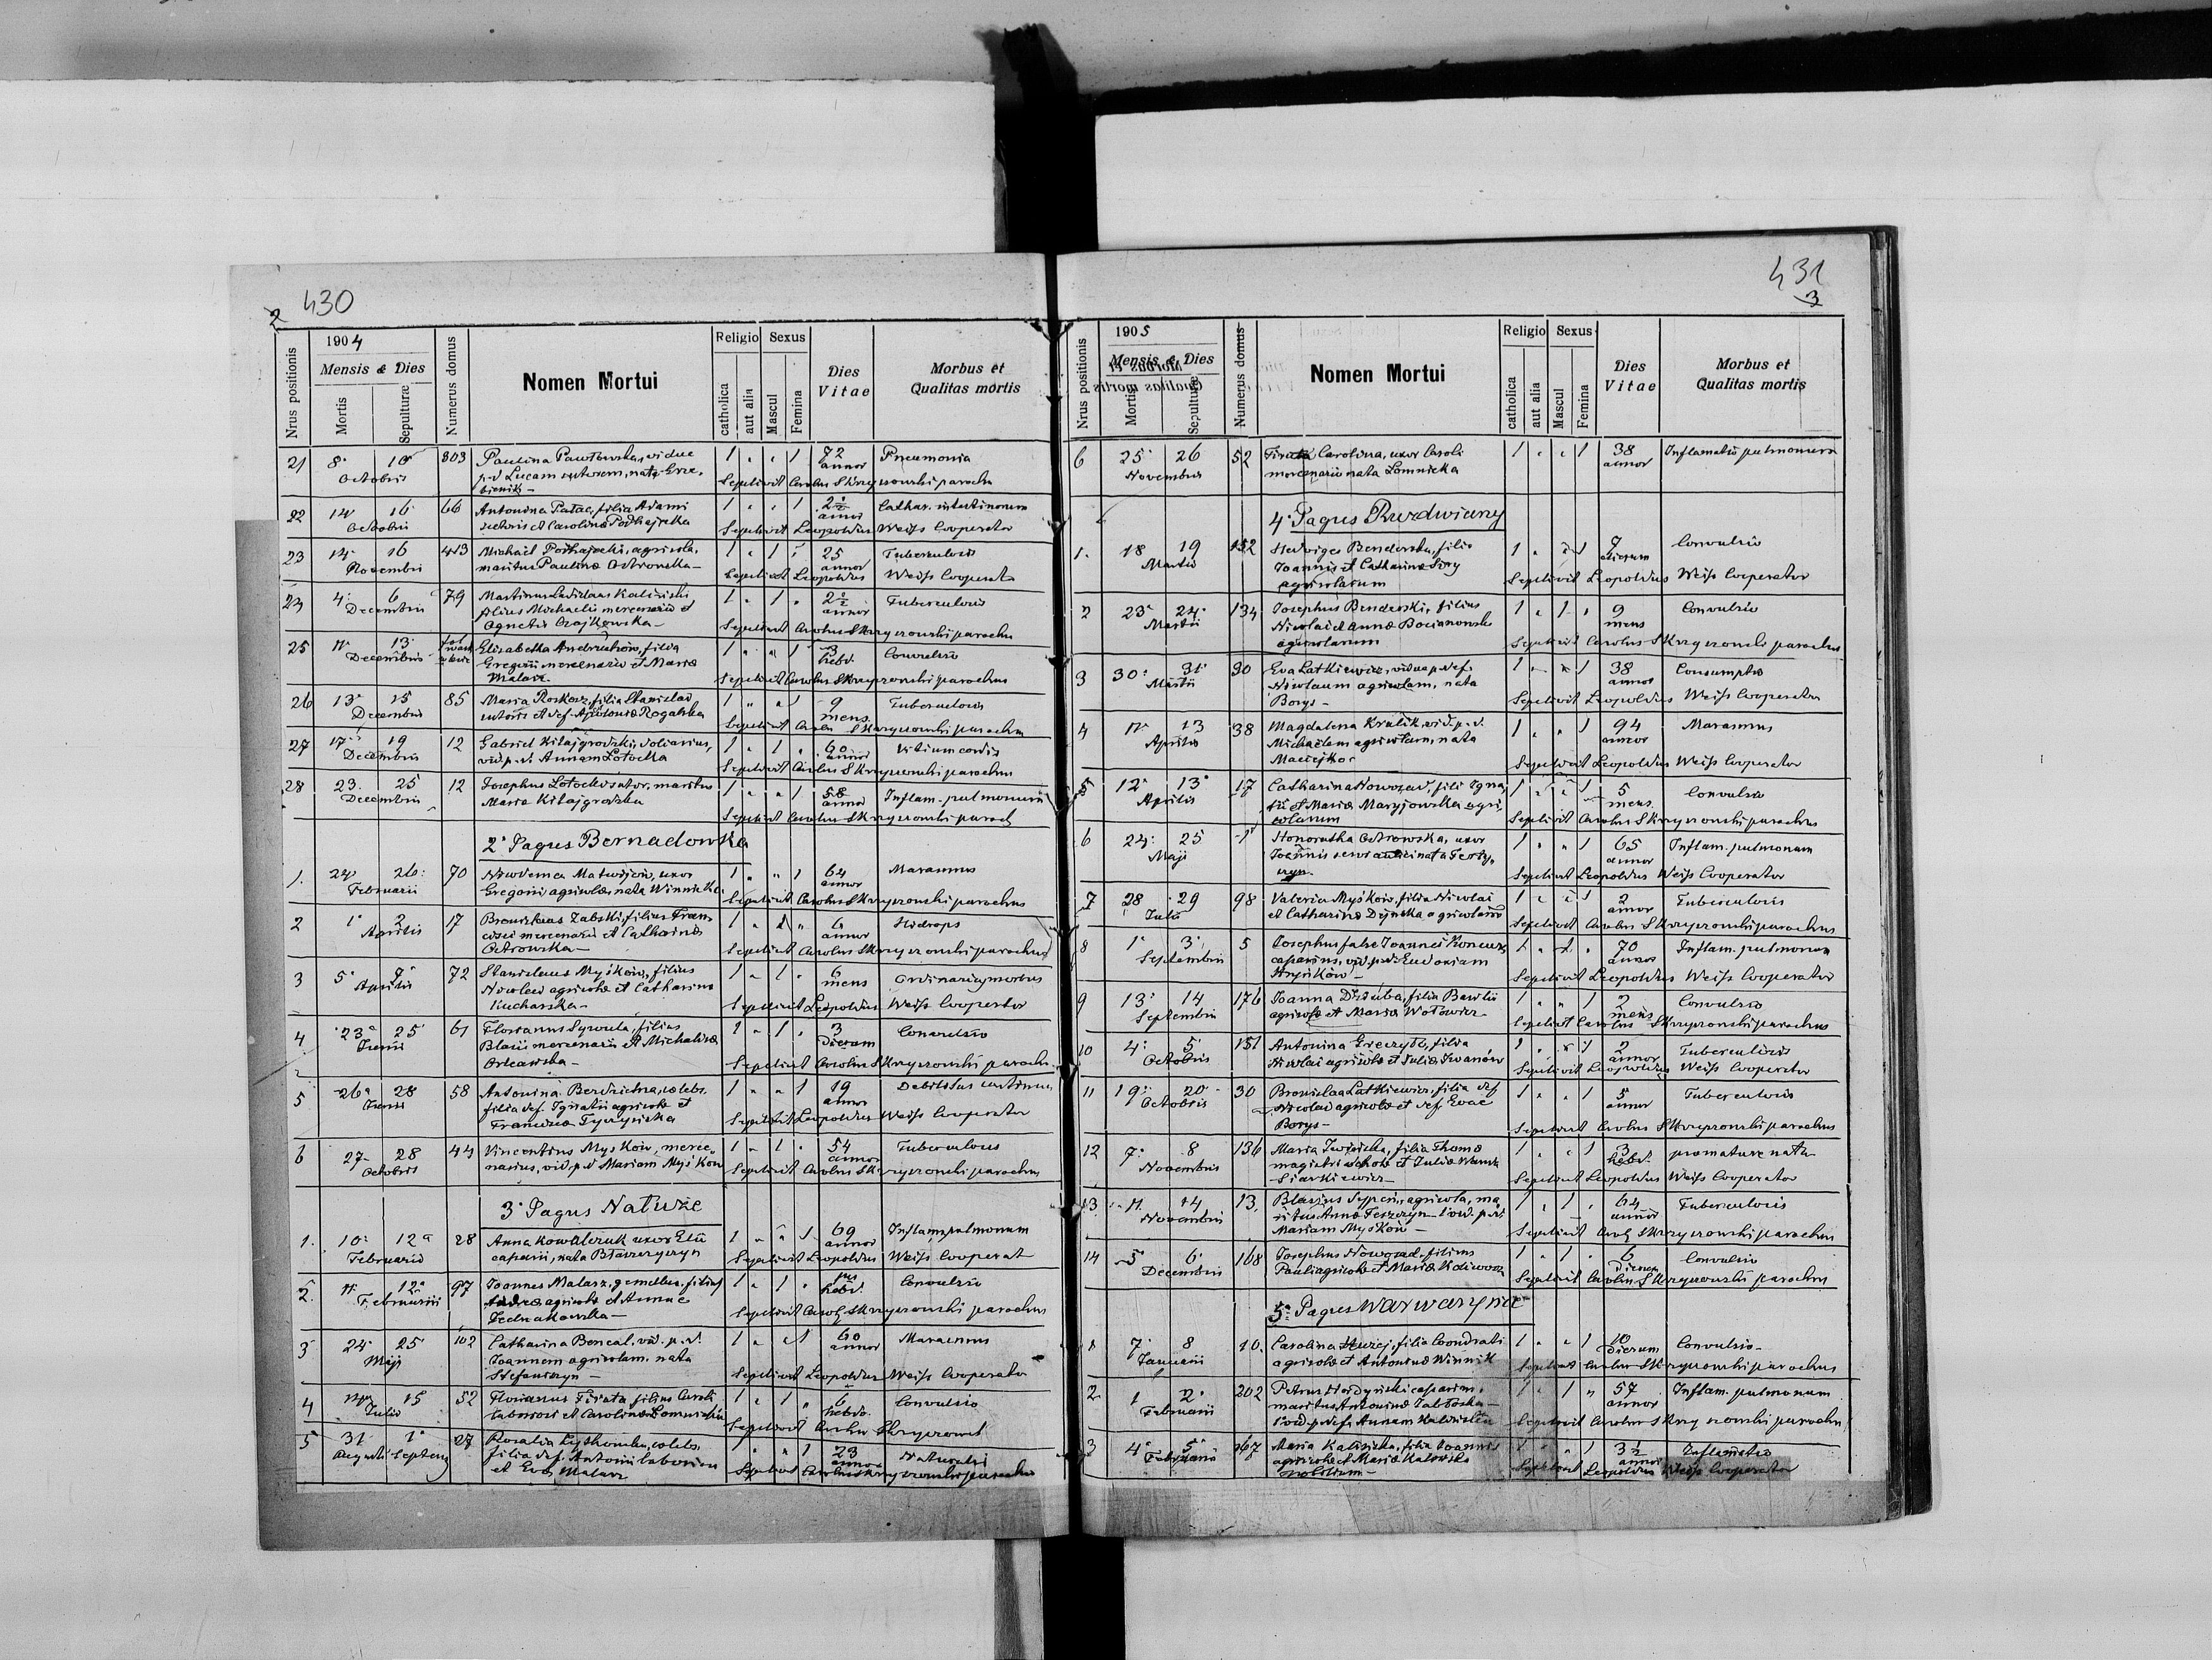 430
2
1904
Mensis & Dies
Nrus positionis
Mortis
Sepulturae
Numerus domus
Nomen Mortui
Religio
catholica
aut alia
Sexus
Mascul
Femina
Dies Vitae
Morbus et Qualitas mortis
21 8 10 Octobris 303 Paulina Pawłowska, vidua 1 " " 1 72 annor Pneumonia
p. d. Lucam sutorem, nata
Sepelivit Carolus Skrzyszowski parochu
22 14 16 Octobris 66 Antonina Pałac, filia Adami 1 " " 1 2 1/2 annor Cathar. intestinorum
sutoris et Carolina Podhajecka
Sepelivit Leopoldus Weiss Cooperator
23 14 16 Novembris 413 Michael Podhajecki, agricola, 1 " 1 " 25 annor Tuberculosis
maritus Paulinæ Ostrowska
Sepelivit Leopoldus Weiss Cooperat
24 4 6 Decembris 79 Martinus Ladislaus Kaliński 1 " 1 " 2 1/2 annor Tuberculosis
filius Michaelis mercenarii et
Agnetis Czajkowska
Sepelivit Carolus Skrzyszowski parochu
25 11 13 Decembris Elisabetha Andruchów, filia 1 " " 1 3 hebd. Convulsio
Gregorii mercenarii et Mariæ
Malarz
Sepelivit Carolus Skrzyszowski parochus
26 13 15 Decembris 85 Maria Roskosz, filia Stanislai 1 " " 1 9 mens. Tuberculosis
sutoris et def. Apoloniæ Rogalska
Sepelivit Carolus Skrzyszowski parochus
27 17 19 Decembris 12 Gabriel Kitajgrodzki, doliarius, 1 " 1 " 60 annor Vitium cordis
vid. p. d. Annam Łotocka
Sepelivit Carolus Skrzyszowski parochus
28 23 25 Decembris 12 Josephus Łotocki sutor, maritus 1 " " 1 58 annor Inflam. pulmonum
Maria Kitajgrodzka
Sepelivit Carolus Skrzyszowski paroch
2 Pagus Bernadówka
1. 24 26 Februarii 70 Matwijciów, uxor 1 " " 1 64 annor Marasmus
Gregorii agricolæ, nata Winnicka
Sepelivit Carolus Skrzyszowski parochus
2 1 2 Aprilis 17 Bronislaus Zabski, filius Fran 1 " 1 " 6 annor Hidrops
cisci mercenarii et Catharinæ
Ostrowska
Sepelivit Carolus Skrzyszowski parochus
3 5 7 Aprilis 72 Stanislaus Myśków, filius 1 " 1 " 6 mens Ordinarius morbus
Nicolai agricolæ et Catharinæ
Kucharska
Sepelivit Leopoldus Weiss Cooperator
4 23 25 Junii 61 Florianus Syrouta, filius 1 " 1 " 3 dierum Convulsio
Blasii mercenarii et Michalinæ
Sepelivit Carolus Skrzyszowski parochu
5 26 28 Junii 58 Antonina celebs, 1 " " 1 19 annor Debilitas
filia def. Ignatii agricolæ et
Franciscæ
Sepelivit Leopoldus Weiss Cooperator
6 27 28 Octobris 44 Vincentius Myśków, merce 1 " 1 " 54 annor Tuberculosis
narius, vid. p. d. Mariam Myśków
Sepelivit Carolus Skrzyszowski parochus
3 Pagus Nałuże
1. 10 12 Februarii 28 Anna Kowalczuk uxor Eliæ 1 " " 1 69 annor Inflam. pulmonum
casparii, nata Błaszczyszyn
Sepelivit Leopoldus Weiss Cooperat
2. 11 12 Februarii 97 Joannes Malarz, gemellus, filius 1 " 1 " hebd. Convulsio
Andreæ agricolæ et Annæ
Jednakowska
Sepelivit Carol. Skrzyszowski parochus
3 24 25 Maji 102 Catharina Bencal, vid. p. d. 1 " " 1 60 annor Marasmus
Joannem agricolam, nata
Stefaniszyn
Sepelivit Leopoldus Weiss Cooperator
4 14 15 Julii 52 Florianus Firata, filius Caroli 1 " 1 " 6 hebdo. Convulsio
laboriosi et Carolinæ Łomnicka
Sepelivit Carolus Skrzyszowsk
5 31 Augusti 1 Septemb 27 Rosalia celebs, " " 1 23 annor Naturalis
filia def. Antonii laboriosi
et Evæ Malarz
Sepelivit Carolus Skrzyszowski parochus
431
3
1905
Mensis & Dies
Nrus positionis
Mortis
Sepulturae
Numerus domus
Nomen Mortui
Religio
catholica
aut alia
Sexus
Mascul
Femina
Dies Vitae
Morbus et Qualitas mortis
6 25 26 Novembris 52 Firata Carolina, uxor Caroli 1 " " 1 38 annor Inflamatio pulmonum
mercenarii nata Łomnicka
4 Pagus Ruzdwiany
1. 18 19 Martii 152 Hedviges Benderska, filia 1 " " 1 7 dierum Convulsio
Joannis et Catharinæ
agricolarum
Sepelivit Leopoldus Weiss Cooperator
2 23 24 Martii 134 Josephus Benderski, filius 1 " 1 " 9 mens Convulsio
Nicolai et Annæ Bocianowska
agricolarum
Sepelivit Carolus Skrzyszowski parochus
3 30 31 Martii 30 Eva Łatkiewicz, vidua p. def. 1 " " 1 38 annor Consumptio
Nicolaum agricolam, nata
Borys
Sepelivit Leopoldus Weiss Cooperator
4 11 13 Aprilis 38 Magdalena Królik, vid. p. d. 1 " " 1 94 annor Marasmus
Michaelem agricolam, nata
Maciejko
Sepelivit Leopoldus Weiss Cooperator
5 12 13 Aprilis 17 Catharina Noworad, fili Igna 1 " " 1 5 mens. Convulsio
tii et Mariæ Maryjowska agri
colarum
Sepelivit Carolus Skrzyszowski parochus
6 24 25 Maji 1 Honoratha Ostrowska, uxor 1 " " 1 65 annor Inflam. pulmonum
Joannis servi nata
Sepelivit Leopoldus Weiss Cooperator
7 28 29 Julii 98 Valeria Myśków, filia Nicolai 1 " " 1 2 annor Tuberculosis
et Catharinæ Dyńska agricolarum
Sepelivit Carolus Skrzyszowski parochus
8 1 3 Septembris 5 Josephus false Joannes Koncur 1 " 1 " 70 annor Inflam. pulmonum
casparius, vid. p. d. Eudoxiam
Hryńków
Sepelivit Leopoldus Weiss Cooperator
9 13 14 Septembris 176 Joanna Dziuba, filia Basilii 1 " " 1 2 mens Convulsio
agricolæ et Mariæ Wołowicz
Sepelivit Carolus Skrzyszowski parochus
10 4 5 Octobris 151 Antonina Greczyło, filia 1 " " 1 2 annor Tuberculosis
Nicolai agricolæ et Juliæ Iwanów
Sepelivit Leopoldus Weiss Cooperator
11 19 20 Octobris 30 Bronislaa Łatkiewicz, filia def 1 " " 1 5 annor Tuberculosis
Nicolai agricolæ et def Evae
Borys
Sepelivit Carolus Skrzyszowski parochus
12 7 8 Novembris 136 Maria filia Thomæ 1 " " 1 3 hebd. præmature nata
magistri scholæ et Juliæ
Siarkiewicz
Sepelivit Leopoldus Weiss Cooperator
13 11 14 Novembris 13. Blasius Sypeń, agricola, ma 1 " 1 " 64 annor Tuberculosis
ritus Annæ Feszczyn 1 vid. p. d.
Mariam Myśków
Sepelivit Carol. Skrzyszowski parochus
14 5 6 Decembris 168 Josephus Noworad, filius 1 " 1 " 6 dierum Convulsio
Pauli agricolæ et Mariæ
Sepelivit Carolus Skrzyszowski parochus
5. Pagus Warwaryńce
1 7 8 Januarii 10. Carolina filia Condrati 1 " " 1 10 dierum Convulsio
agricolæ et Antoninæ Winnik
Sepelivit Carolus Skrzyszowski parochus
2. 1 2 Februarii 202 Petrus Hordyński casparius, 1 " 1 " 57 annor Inflam. pulmonum
maritus Antoninæ Jabłońska
1 vid. p. def. Annam Kalińska
Sepelivit Carolus Skrzyszowski parochu
3 4 5 Februarii 167 Maria Kalińska, filia Joannis 1 " " 1 3 1/2 annor Inflamatio
agricolæ et Mariæ Kalińska
nobilium
Sepelivit Leopoldus Weiss Cooperator